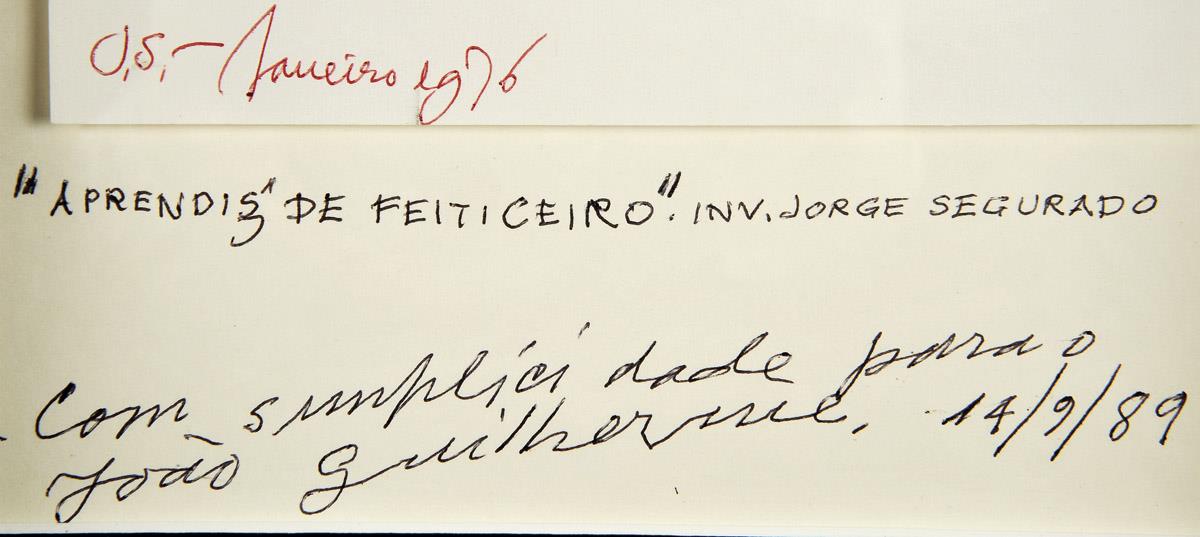 J.S. — Janeiro 1976
"APRENDIS" DE FEITICEIRO". INV. JORGE SEGURADO
Com simplicidade para o
João Guilherme, 14/9/89